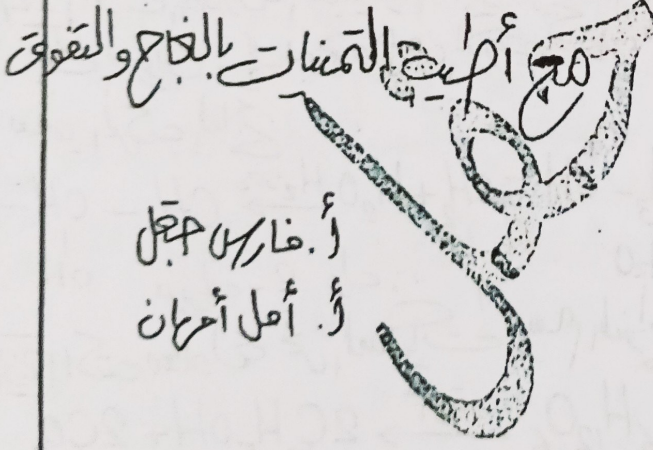 مع أطيب التمنيات بالنجاح والتفوق
أ. فارس جقل
أ. أمل أمهان